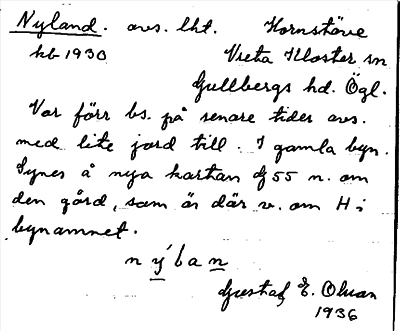 Nyland. avs. lht. Hornstöve
kb 1930 Vreta Kloster sn
Gullbergs hd. Ögl.
Var förr bs. på senare tider avs.
med lite jord till. I gamla byn.
Synes å nya kartan Ef 55 n. om
den gård, som är där v. om H i
bynamnet.
nýban
Gustaf E. Olsson
1936